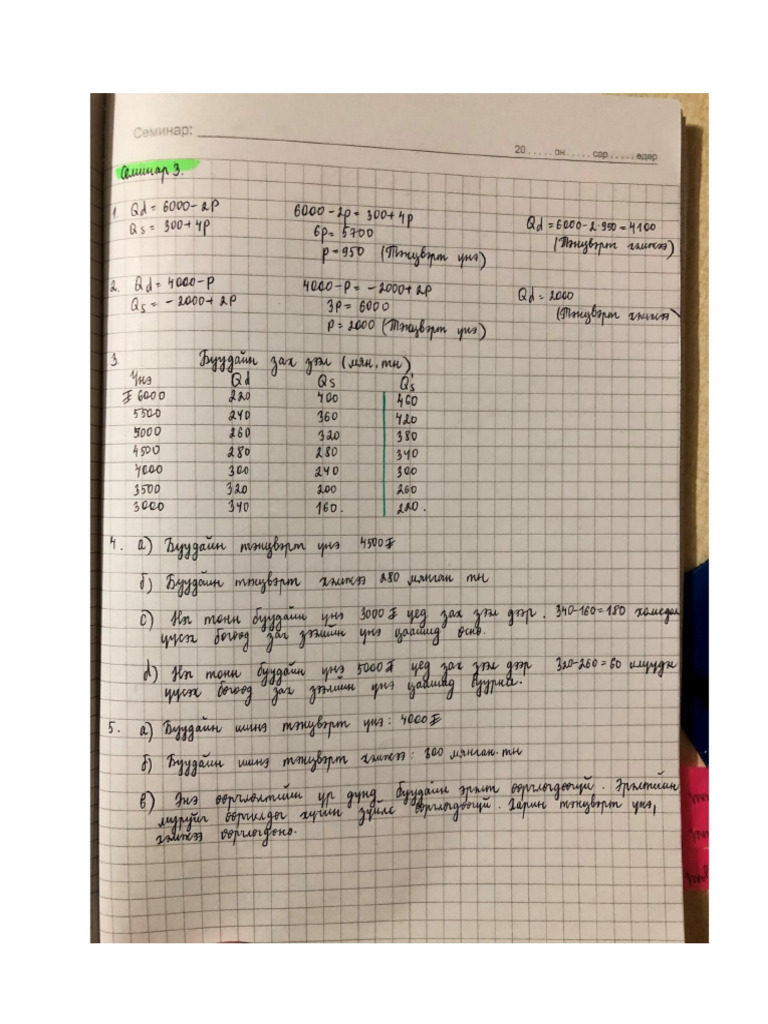 Семинар:
20 ..... он ..... сар ..... өдөр
Семинар 3.
1. Qd = 6000-2P   6000-2p = 300+4p   Qd = 6000-2·950=4100
Qs = 300+4P   6p = 5700   (Тэнцвэрт хэмжээ)
p = 950 (Тэнцвэрт үнэ)
2. Qd = 4000-P   4000-P = -2000+2P   Qd = 2000
Qs = -2000+2P   3P = 6000   (Тэнцвэрт хэмжээ)
P = 2000 (Тэнцвэрт үнэ)
3. Буудайн зах зээл (мян.тн)
Үнэ   Qd   Qs   Qs'
₮ 6000   220   400   460
5500   240   360   420
5000   260   320   380
4500   280   280   340
4000   300   240   300
3500   320   200   260
3000   340   160.   220.
4. а) Буудайн тэнцвэрт үнэ 4500₮
б) Буудайн тэнцвэрт хэмжээ 280 мянган тн
c) Нэг тонн буудайн үнэ 3000₮ үед зах зээл дээр. 340-160=180 хомсдол
үүсэх бөгөөд зах зээлийн үнэ цаашид өснө.
d) Нэг тонн буудайн үнэ 5000₮ үед зах зээл дээр 320-260=60 илүүдэл
үүсэх бөгөөд зах зээлийн үнэ цаашид буурна.
5. а) Буудайн шинэ тэнцвэрт үнэ: 4000₮
б) Буудайн шинэ тэнцвэрт хэмжээ: 300 мянган.тн
в) Энэ өөрчлөлтийн үр дүнд буудайн эрэлт өөрчлөгдөөгүй. Эрэлтийн
муруйг өөрчилдөг хүчин зүйлс өөрчлөгдөөгүй. Харин тэнцвэрт үнэ,
хэмжээ өөрчлөгдөнө.